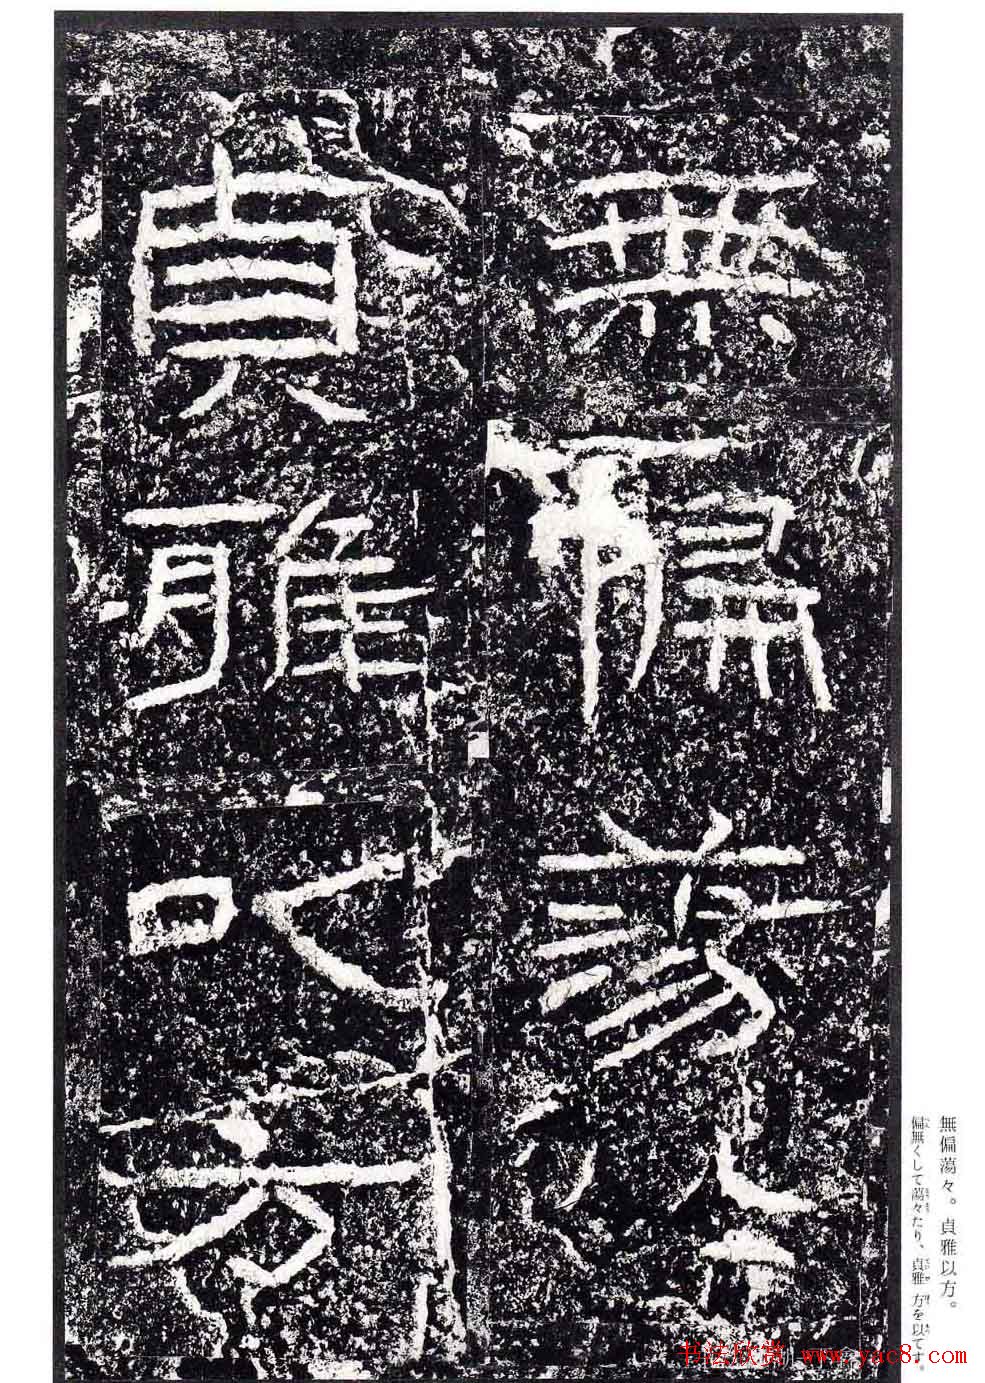 無偏蕩
貞雅以方
無偏蕩々。貞雅以方。
偏無くして蕩々たり、貞雅 方を以てす。
书法欣赏 www.yac8.com